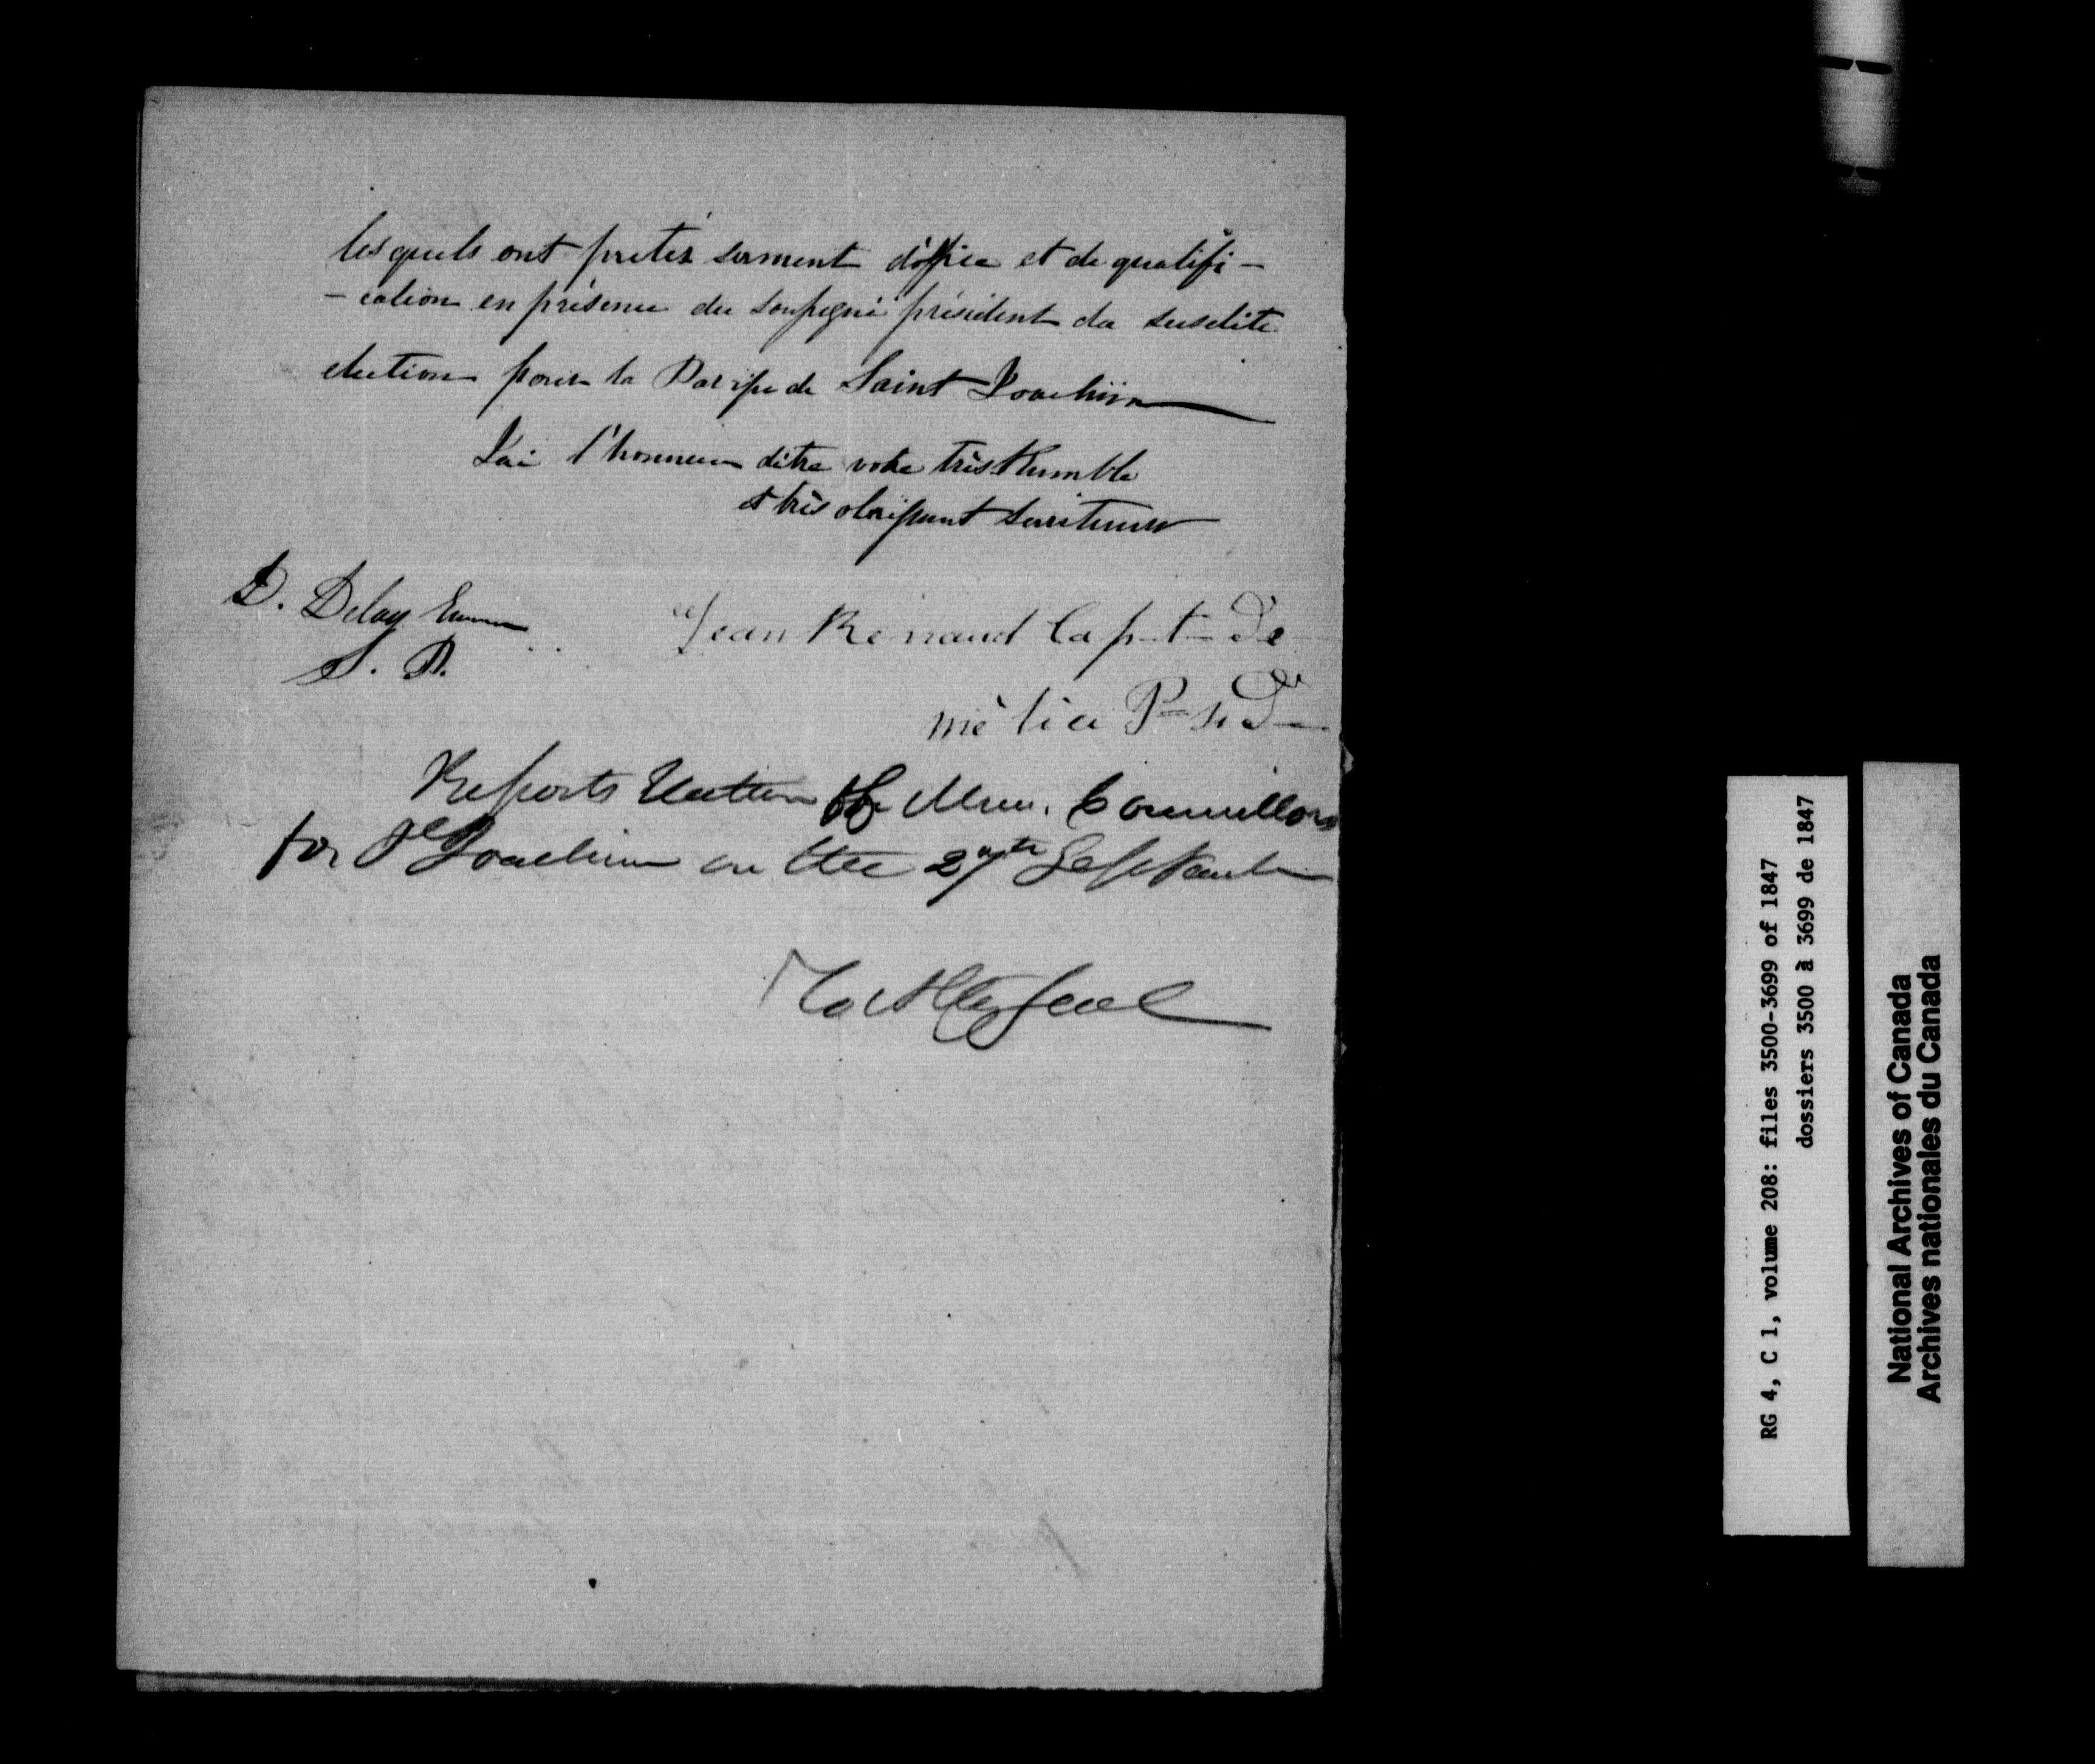 lesquels ont pretés serment d'office et de qualifi-
-cation en présence du soussigné président da susdite
election pour la Paroisse de Saint Joachim
J'ai l'honneur d'être votre très Humble
et très obeissant serviteur
D. Delay
S. P.
Jean Renaud Capt De
mèlice P
Reports Election of Mun. Councillors
for St Joachim on the 27th September
To Atty Genl
RG 4, C 1, volume 208: files 3500-3699 of 1847
dossiers 3500 à 3699 de 1847
National Archives of Canada
Archives nationales du Canada